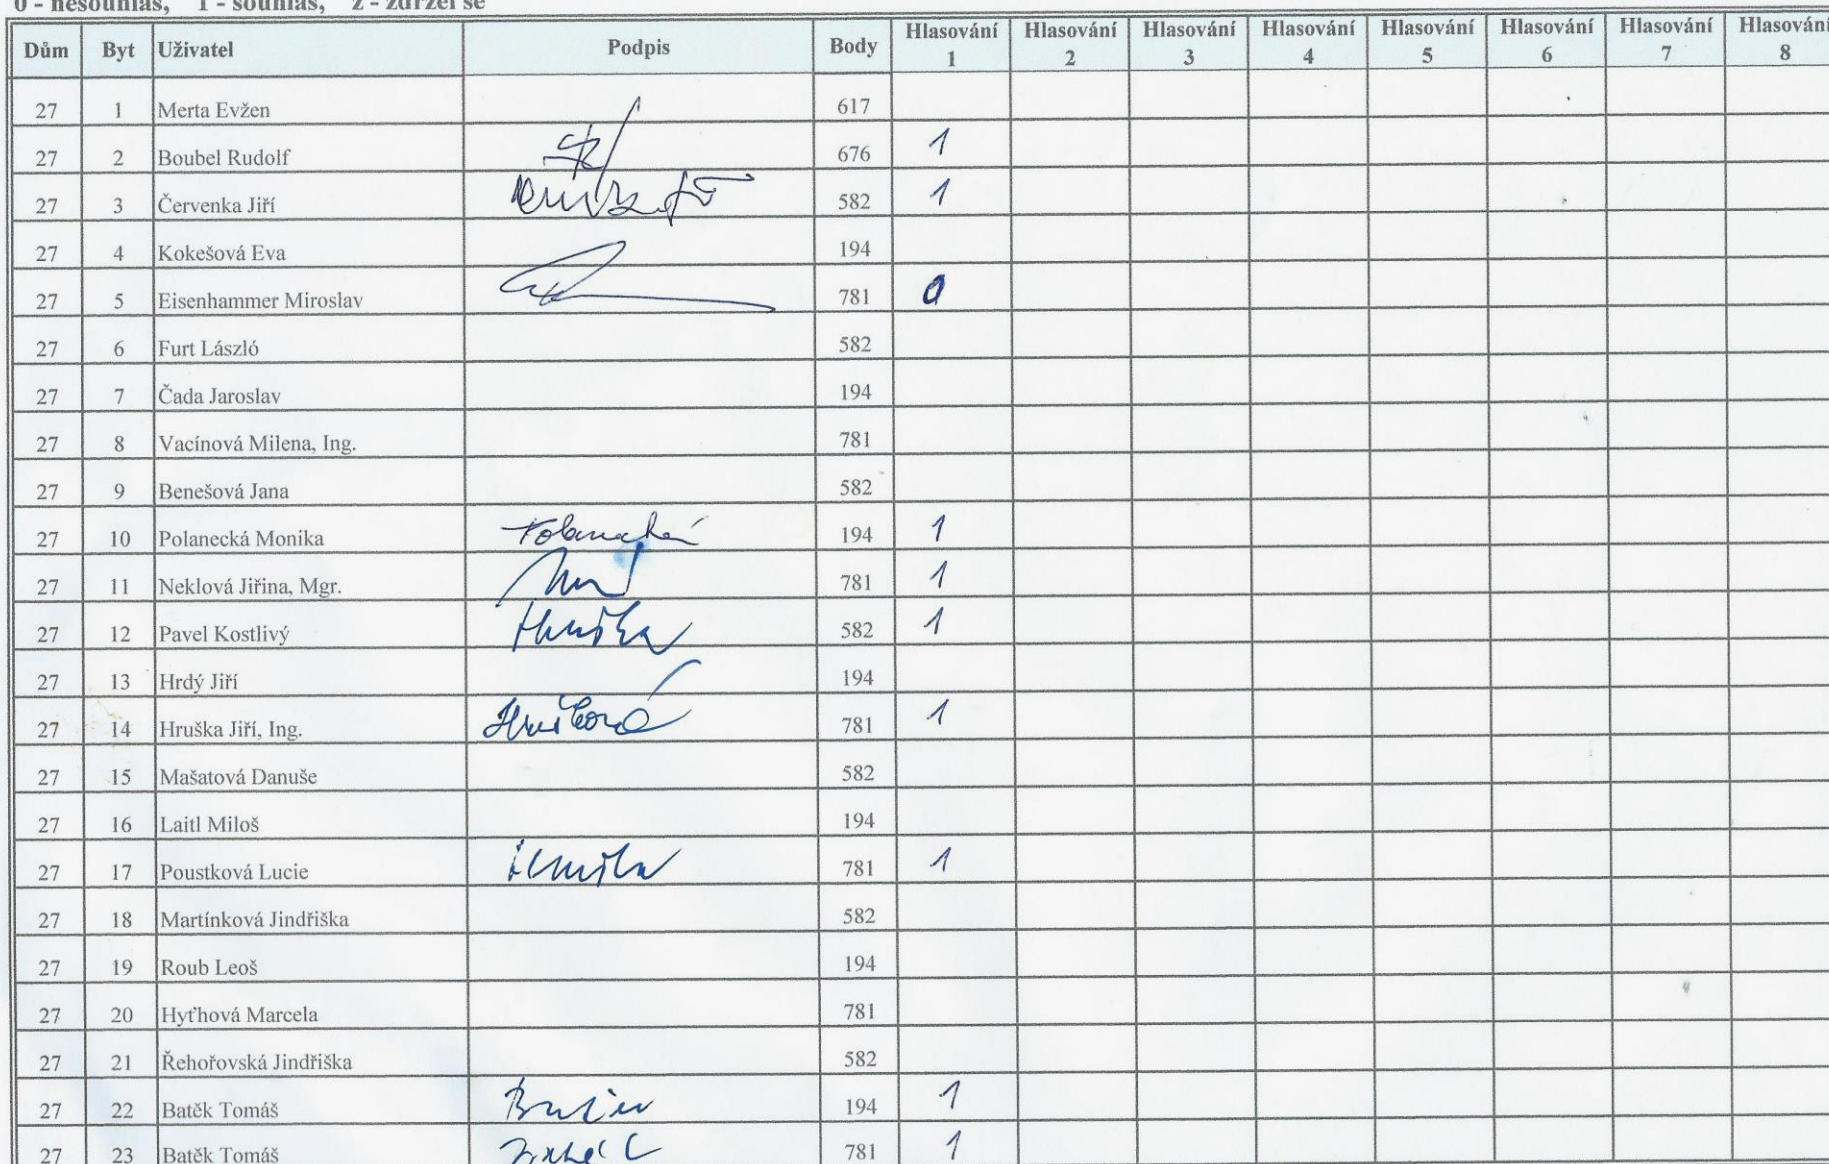 0 - nesouhlas, 1 - souhlas, z - zdržel se
Dům Byt Uživatel Podpis Body Hlasování 1 Hlasování 2 Hlasování 3 Hlasování 4 Hlasování 5 Hlasování 6 Hlasování 7 Hlasování 8
27 1 Merta Evžen 617
27 2 Boubel Rudolf 676 1
27 3 Červenka Jiří 582 1
27 4 Kokešová Eva 194
27 5 Eisenhammer Miroslav 781 0
27 6 Furt László 582
27 7 Čada Jaroslav 194
27 8 Vacínová Milena, Ing. 781
27 9 Benešová Jana 582
27 10 Polanecká Monika 194 1
27 11 Neklová Jiřina, Mgr. 781 1
27 12 Pavel Kostlivý Hruška 582 1
27 13 Hrdý Jiří 194
27 14 Hruška Jiří, Ing. Hrušková 781 1
27 15 Mašatová Danuše 582
27 16 Laitl Miloš 194
27 17 Poustková Lucie Hruška 781 1
27 18 Martínková Jindřiška 582
27 19 Roub Leoš 194
27 20 Hyťhová Marcela 781
27 21 Řehořovská Jindřiška 582
27 22 Batěk Tomáš 194 1
27 23 Batěk Tomáš 781 1